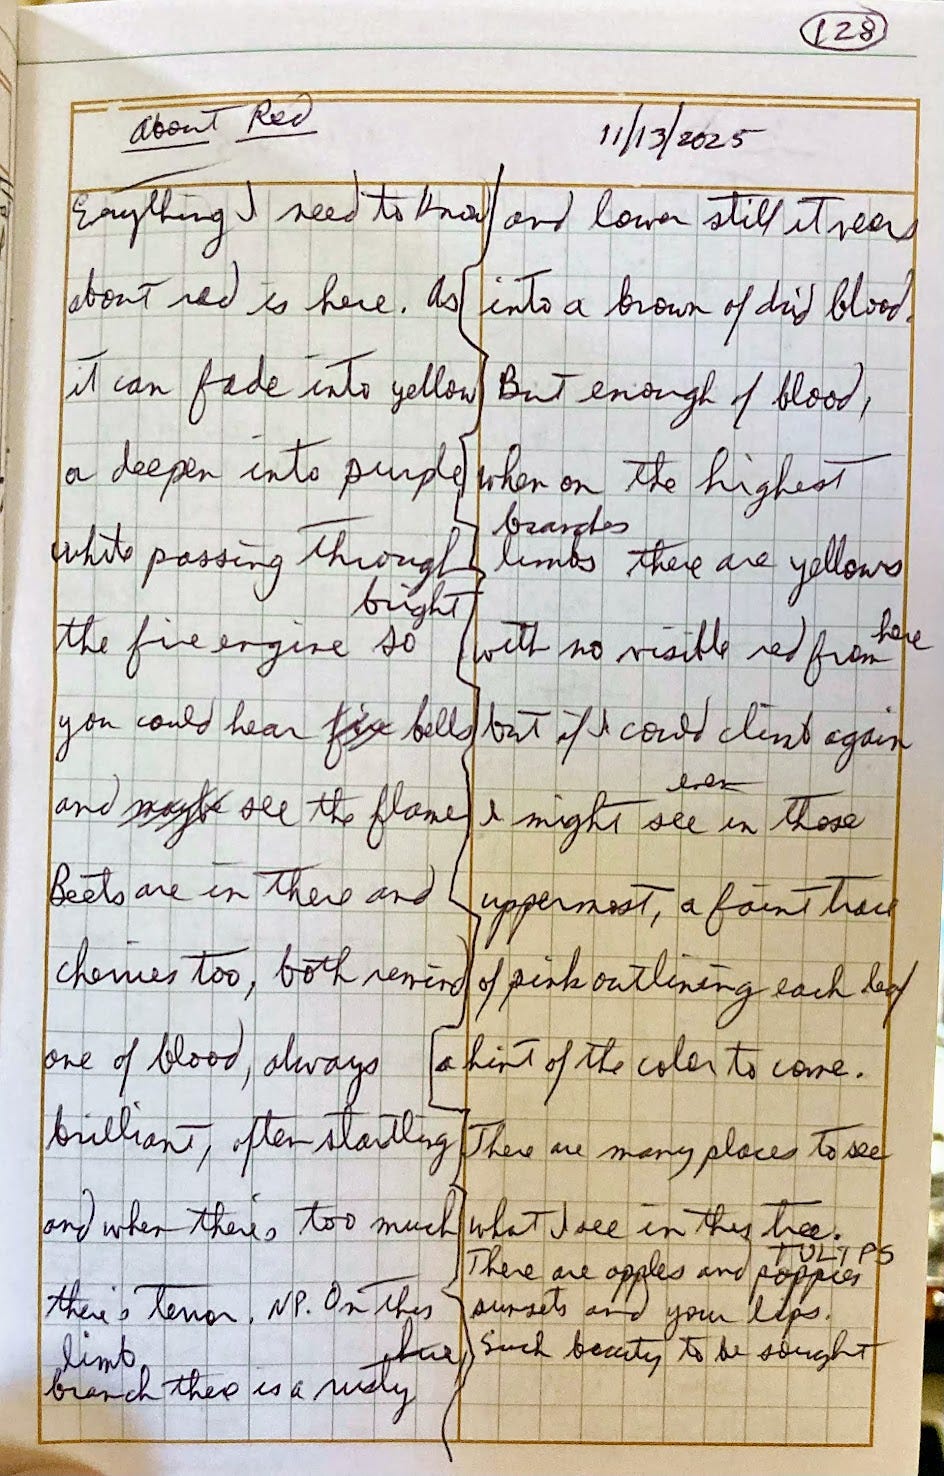 128
About Red
11/13/2025
Everything I need to know
about red is here. As
it can fade into yellow
a deepen into purple
while passing through
bright
the fire engine so
you could hear fire bells
and maybe see the flame
Beets are in there and
cherries too, both remind
one of blood, always
brilliant, often startling
and when there's too much
there's terror. NP. On this
limb hue
branch there is a rusty
and lower still it veers
into a brown of dried blood.
But enough of blood,
when on the highest
branches
limbs there are yellows
here
with no visible red from
but if I could climb again
even
I might see in those
uppermost, a faint trace
of pink outlining each leaf
a hint of the color to come.
There are many places to see
what I see in this tree.
TULIPS
There are apples and poppies
sunsets and your lips.
Such beauty to be sought